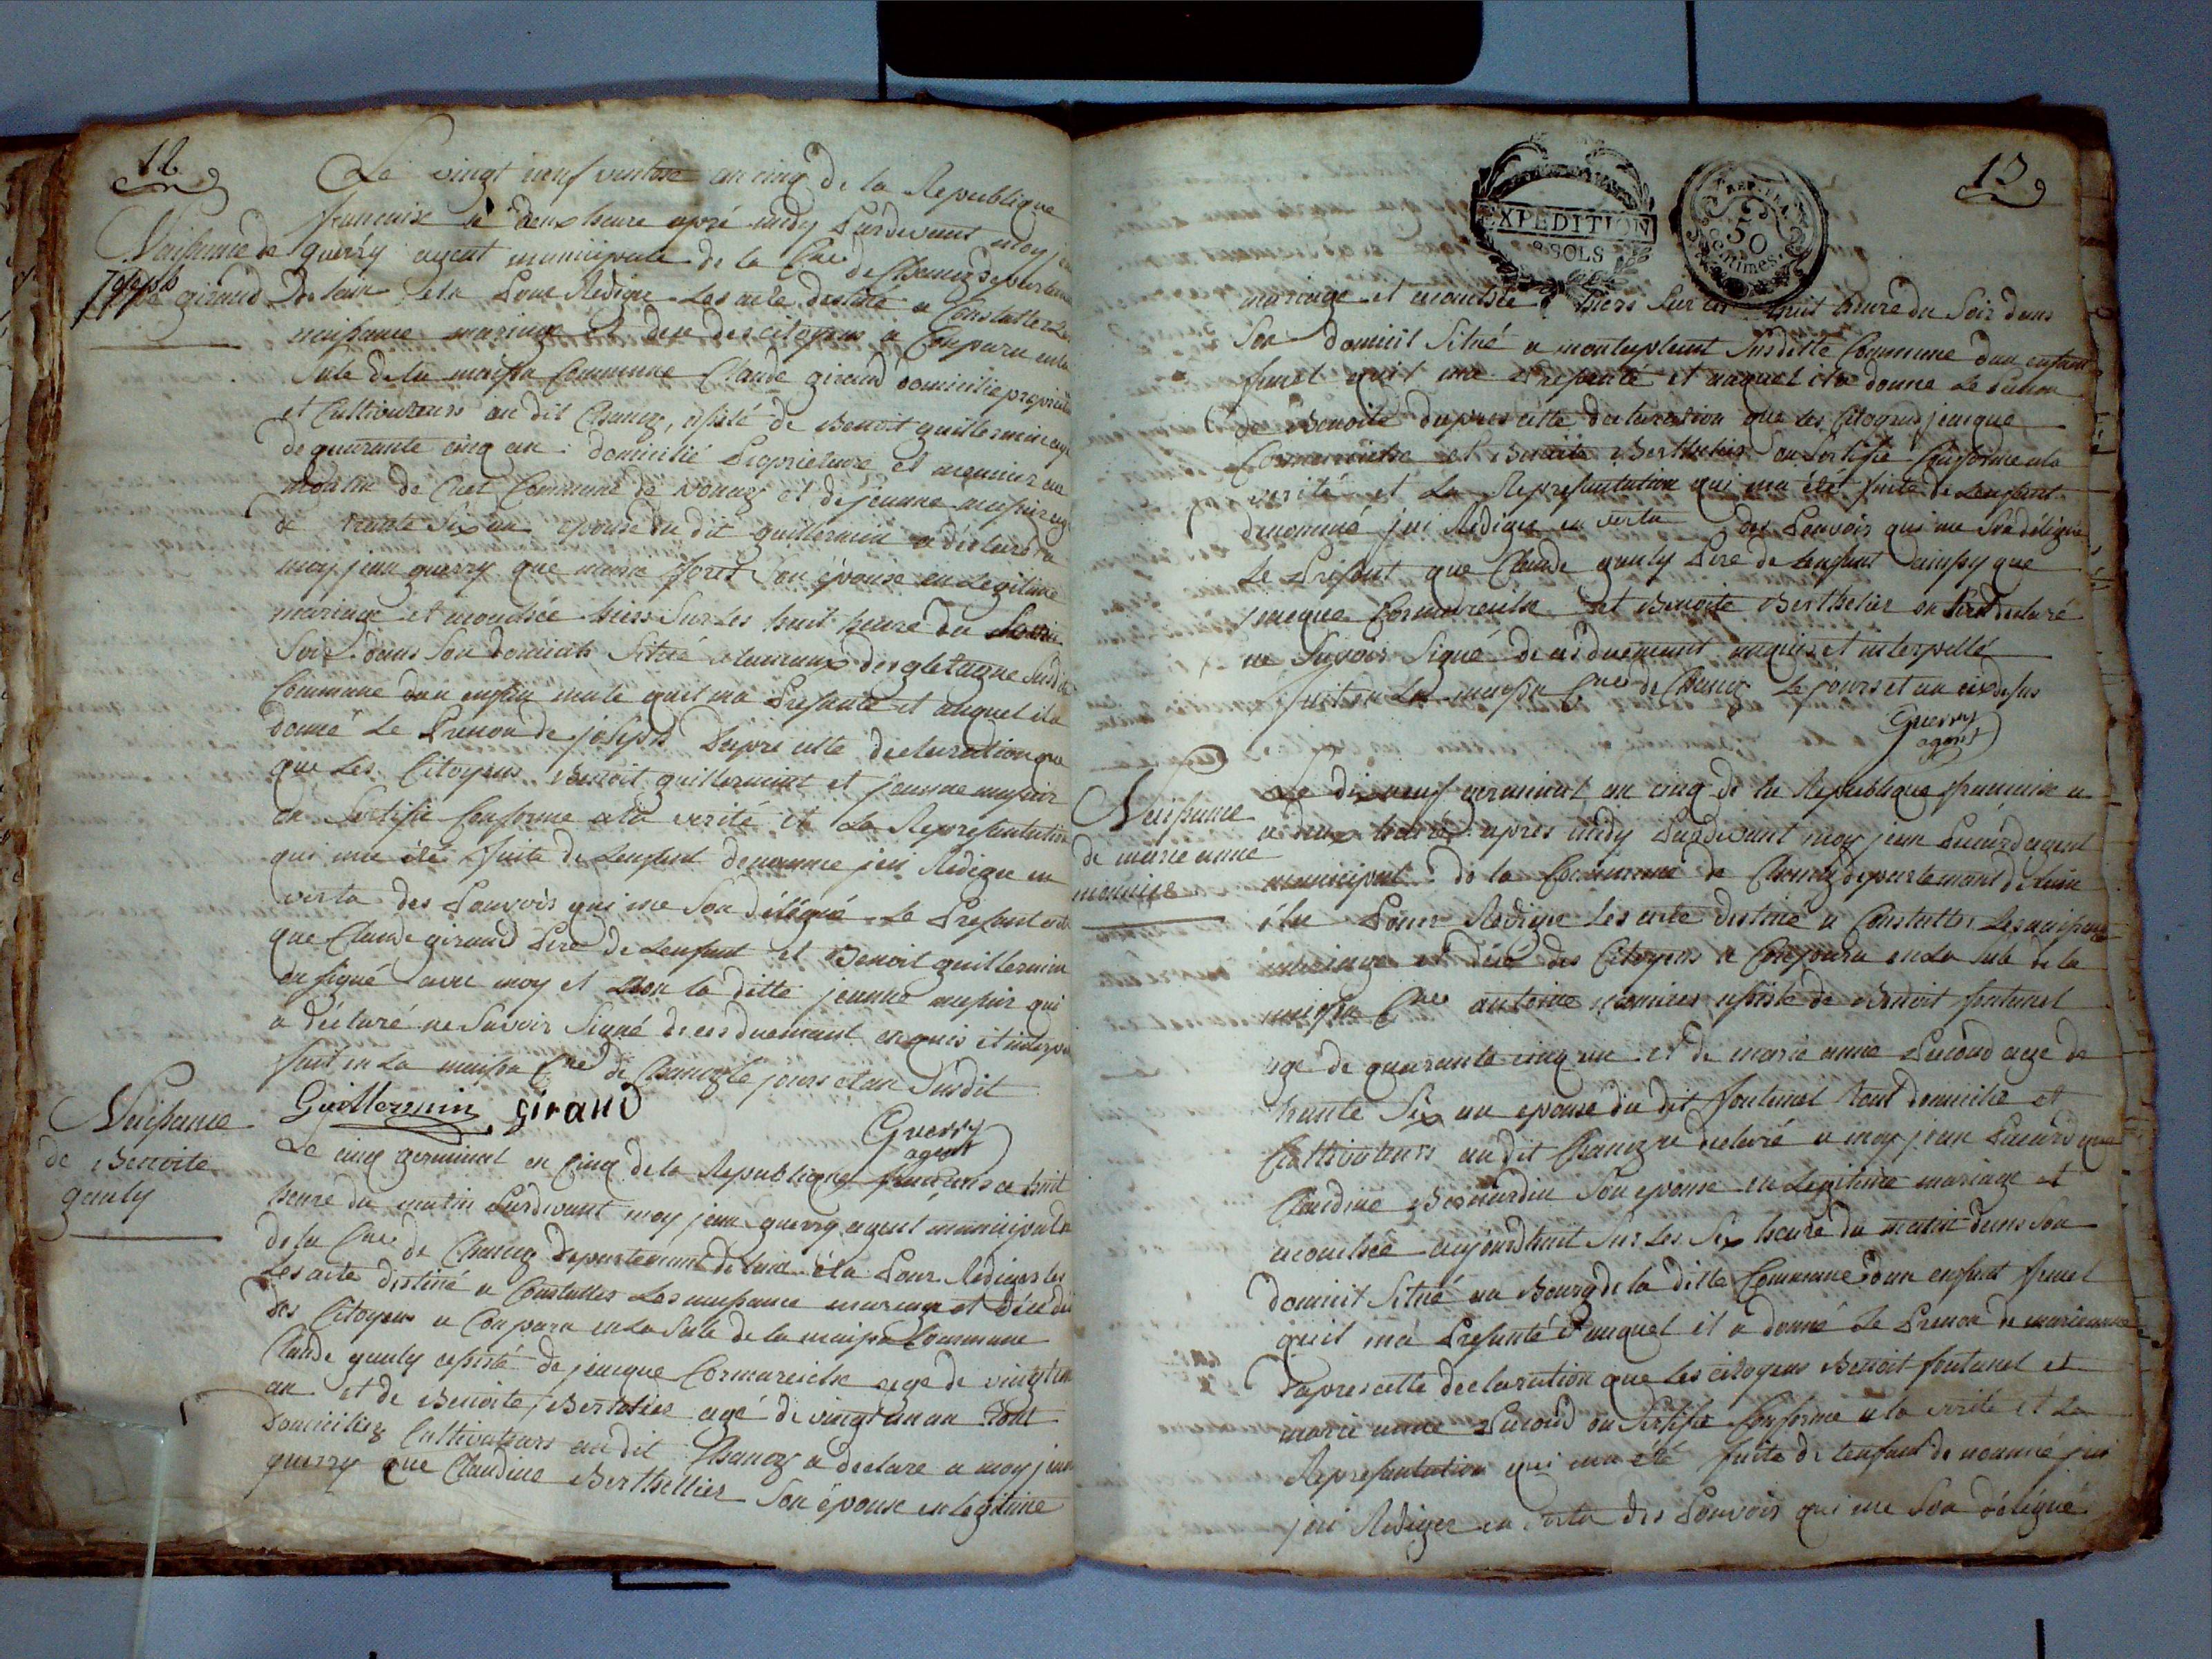 12
Naissance de
Joseph
giraud
Le vingt neuf ventose an cinq de la Republique
francaise a deux heure apré midy Pardevant moy
guerry agent municipale de la Cne de Chaneg departem
de lain elu Pour Redigé Les acte destiné a Constatter Le
naissance mariage et dece des citoyens a Conparu en la
Sale de la maison Commune Claude giraud domicilié proprietai
et Cultivateurs au dit Chaneg, assisté de Benoit guillermin agé
de quarante cinq an domicilié Proprietaire et meunier au
moulin de Commune de et de jeanne
de trante Six an epouse du dit guillermin a déclaré a
moy jean guerry que marie foret Son épouse en Legitime
mariage et acouchée hiers Sur Les huit heure du
Soir dans Son domicile Situé Susdi
Commune dun enfan male quil ma Presanté et auquel il a
donné Le Prenon de joseph Dapré cette declaration
que Les Citoyens Benoit guillermint et jeanne
on Certifié Conforme a la verité et La Representation
qui ma été faite de Lenfant denommé jai Redigé en
vertu des Pouvoirs qui me Son délégué Le Present acte
que Claude giraud Pere de Lenfant et Benoit guillermin
on signé avec moy et non la ditte jeanne qui
a déclaré ne Savoir Signé de ces duemant enquis et interpe
fait en La maison Cne de Chaneg Le jours et an Susdit
Guillermin giraud
Guerry
agent
Naissance
de Benoite
genly
Le cinq germinal en Cinq de la Republique francaise a huit
heure du matin Pardevant moy jean guerry agent municipal
de la Cne de Chaneg departemant de lain élu Pour Rediger les
Les acte destiné a Constatter Les naissance mariage et déce de
des Citoyens a Conparu en La Sale de la maison Commune
Claude genly assisté de jacque Cormareiche agé de vingt
an et de Benoite Berthelier agé de vingt un an tout
Domicilies Cultivateurs au dit Chaneg a declare a moy jean
guerry que Claudine Berthellier Son épouse en legitime
13
EXPEDITION
8 SOLS
REP. FRA.
50
Centimes.
mariage et acouchée hiers Sur Les huit heure du Soir dans
Son domicil Situé a Susditte Commune dun enfant
fumel quil ma Presanté et auquel il a donné Le Prenon
de Benoite dapres cette declaration que Les Citoyens jacque
Cormareiche et Benoite Berthelier on Certifié Conforme a la
verité et La Representation qui ma été faite de Lenfant
denommé jai Redigé en vertu des Pouvoirs qui me Son délégué
Le Present que Claude genly Pere de Lenfant ainsy que
jacque Cormareiche et Benoite Berthelier on tout declaré
ne Savoir Signé de ces duemant enquis et interpellé
fait en La maison Cne de Chaneg Le jours et an cix desus
Guerry
agent
Naissance
de marie anne
Le dix neuf germinal an cinq de la Republique francaise a
a deux heure apres midy Pardevant moy jean agent
municipal de la Commune de Chaneg departemant de lain
élu Pour Rediger Les acte destiné a Constatter Les naissance
mariage et déce des Citoyens a Conparu en La Sale de la
maison Cne antoine assisté de Benoit fontanel
agé de quarante cinq an et de marie anne agé de
trante Six an epouse du dit fontanel tout domicilié et
Cultivateurs au dit Chaneg a declaré a moy jean que
Claudine Bernardin Son epouse en Legitime mariage et
acouchée aujourdhuit Sur Les Six heure du matin dans Son
domicil Situé au Bourg de la ditte Commune dun enfant fumel
quil ma Presanté et auquel il a donné Le Prenon de marie anne
Dapres cette declaration que Les citoyens Benoit fontanel et
marie anne on Certifié Conforme a la verité et La
Representation qui ma été faite de Lenfant denommé jai
jai Rediger en vertu des Pouvoirs qui me Son délégué